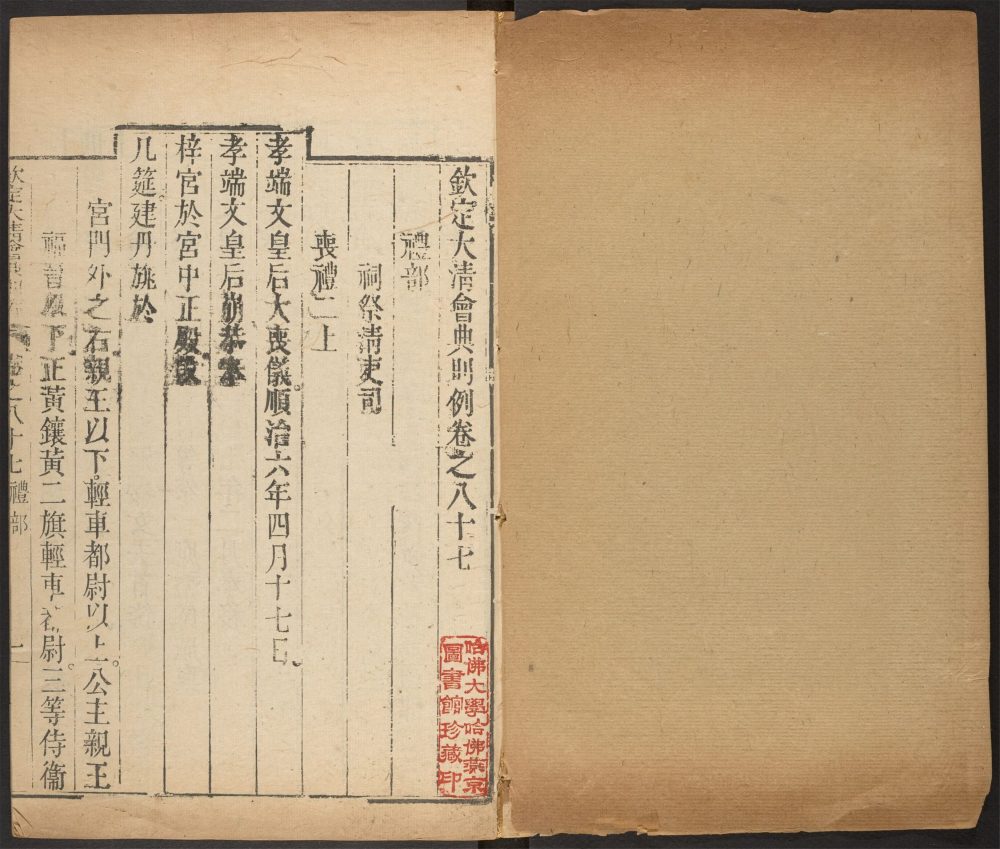 欽定大清會典則例卷之八十七
禮部
祠祭清吏司
喪禮二上
孝端文皇后大喪儀順治六年四月十七日
孝端文皇后崩恭奉
梓宮於宮中正殿設
几筵建丹旐於
宮門外之右親王以下輕車都尉以上公主親王
福晉以下正黃鑲黃二旗輕車都尉三等侍衞
欽定大清會典則例 卷之八十七禮部 一
哈佛大學哈佛燕京
圖書館珍藏印